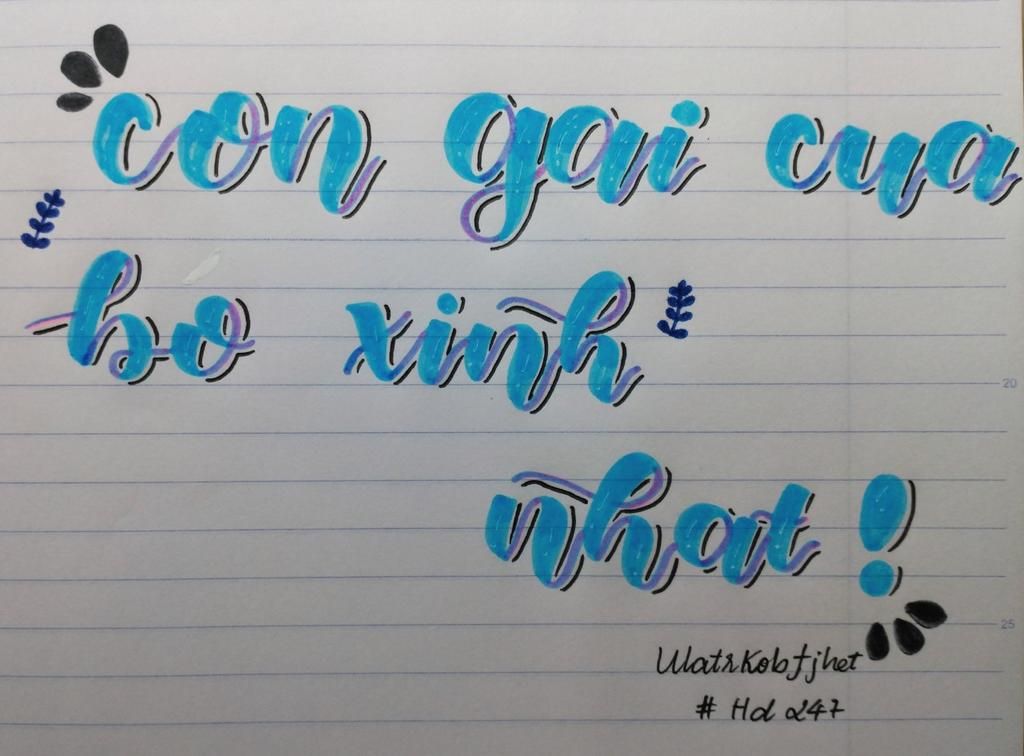 con gai cua
bo xinh
nhat !
UlatrKobfjhet
# Hd 247
20
25